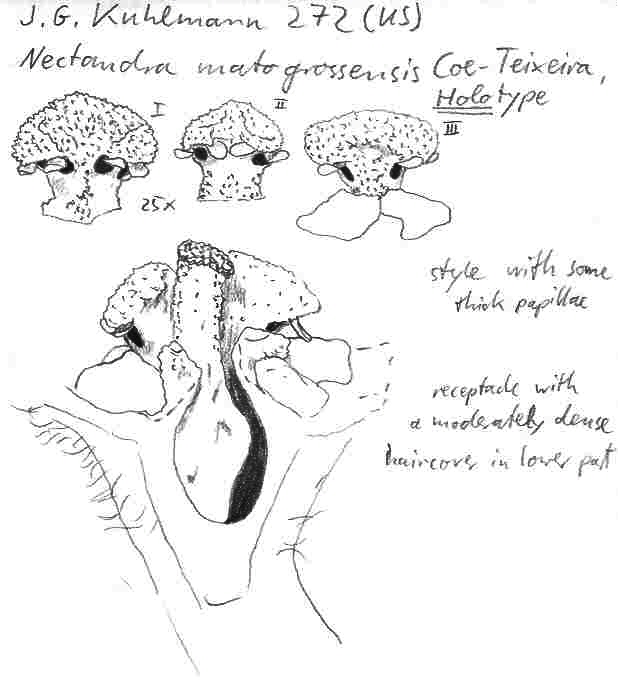 J. G. Kuhlmann 272 (US)
Nectandra matogrossensis Coe-Teixeira,
Holotype
I
II
III
25x
style with some
thick papillae
receptacle with
a moderately dense
haircover in lower part